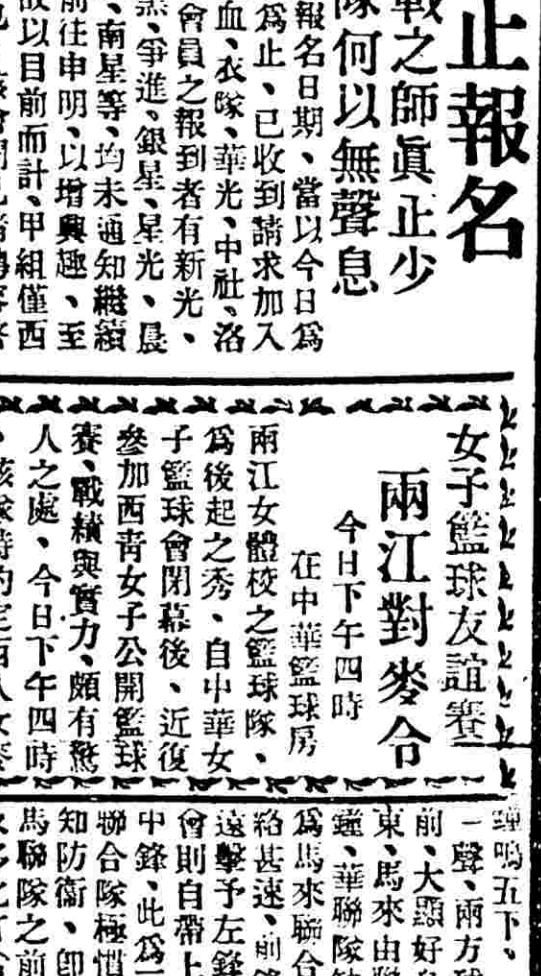 止報名
戰之師眞止少
隊何以無聲息
報名日期、當以今日爲
爲止、已收到請求加入
血、衣隊、華光、中社、洛
會員之報到者有新光、
黑、爭進、銀星、星光、晨
、南星等、均未通知繼續
前往申明、以增興趣、至
故以目前而計、甲組僅西
女子籃球友誼賽
兩江對麥令
今日下午四時
在中華籃球房
兩江女體校之籃球隊、
爲後起之秀、自中華女
子籃球會閉幕後、近復
參加西靑女子公開籃球
賽、戰績與實力、頗有驚
人之處、今日下午四時
鐘鳴五下、
一聲、兩方
前、大顯好
東、馬來由
鐘、華聯隊
爲馬來聯合
絡甚速、前鋒
遠擊予左鋒
會則自帶上
中鋒、此爲
聯合隊極
知防衞、卽
馬聯隊之前